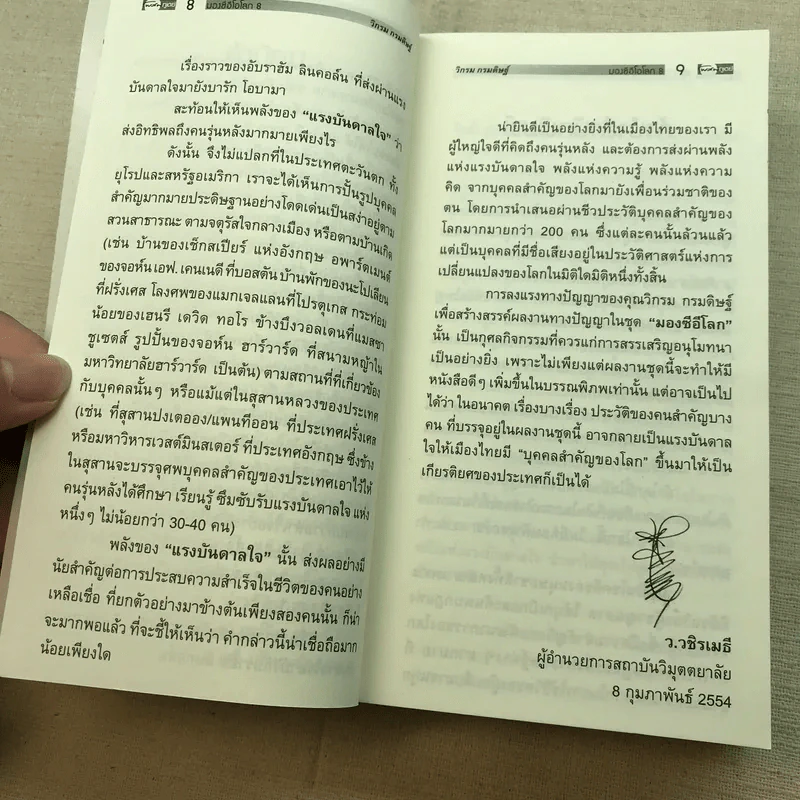 8 มองซีอีโอโลก 8
วิกรม กรมดิษฐ์
เรื่องราวของอับราฮัม ลินคอล์น ที่ส่งผ่านแรง
บันดาลใจมายังบารัก โอบามา
สะท้อนให้เห็นพลังของ “แรงบันดาลใจ” ว่า
ส่งอิทธิพลถึงคนรุ่นหลังมากมายเพียงไร
ดังนั้น จึงไม่แปลกที่ในประเทศตะวันตก ทั้ง
ยุโรปและสหรัฐอเมริกา เราจะได้เห็นการปั้นรูปบุคคล
สำคัญมากมายประดิษฐานอย่างโดดเด่นเป็นสง่าอยู่ตาม
สวนสาธารณะ ตามจตุรัสใจกลางเมือง หรือตามบ้านเกิด
(เช่น บ้านของเช็กสเปียร์ แห่งอังกฤษ อพาร์ตเมนต์
ของจอห์น เอฟ. เคนเนดี ที่บอสตัน บ้านพักของนะโปเลียน
ที่ฝรั่งเศส โลงศพของแมกเจลแลนที่โปรตุเกส กระท่อม
น้อยของเฮนรี เดวิด ทอโร ข้างบึงวอลเดนที่แมสซา
ชูเซตส์ รูปปั้นของจอห์น ฮาร์วาร์ด ที่สนามหญ้าใน
มหาวิทยาลัยฮาร์วาร์ด เป็นต้น) ตามสถานที่ที่เกี่ยวข้อง
กับบุคคลนั้นๆ หรือแม้แต่ในสุสานหลวงของประเทศ
(เช่น ที่สุสานปงเตออง/แพนทีออน ที่ประเทศฝรั่งเศส
หรือมหาวิหารเวสต์มินสเตอร์ ที่ประเทศอังกฤษ ซึ่งข้าง
ในสุสานจะบรรจุศพบุคคลสำคัญของประเทศเอาไว้ให้
คนรุ่นหลังได้ศึกษา เรียนรู้ ซึมซับรับแรงบันดาลใจ แห่ง
หนึ่งๆ ไม่น้อยกว่า 30-40 คน)
พลังของ “แรงบันดาลใจ” นั้น ส่งผลอย่างมี
นัยสำคัญต่อการประสบความสำเร็จในชีวิตของคนอย่าง
เหลือเชื่อ ที่ยกตัวอย่างมาข้างต้นเพียงสองคนนั้น ก็น่า
จะมากพอแล้ว ที่จะชี้ให้เห็นว่า คำกล่าวนี้น่าเชื่อถือมาก
น้อยเพียงใด
วิกรม กรมดิษฐ์
มองซีอีโอโลก 8 9
น่ายินดีเป็นอย่างยิ่งที่ในเมืองไทยของเรา มี
ผู้ใหญ่ใจดีที่คิดถึงคนรุ่นหลัง และต้องการส่งผ่านพลัง
แห่งแรงบันดาลใจ พลังแห่งความรู้ พลังแห่งความ
คิด จากบุคคลสำคัญของโลกมายังเพื่อนร่วมชาติของ
ตน โดยการนำเสนอผ่านชีวประวัติบุคคลสำคัญของ
โลกมากมายกว่า 200 คน ซึ่งแต่ละคนนั้นล้วนแล้ว
แต่เป็นบุคคลที่มีชื่อเสียงอยู่ในประวัติศาสตร์แห่งการ
เปลี่ยนแปลงของโลกในมิติใดมิติหนึ่งทั้งสิ้น
การลงแรงทางปัญญาของคุณวิกรม กรมดิษฐ์
เพื่อสร้างสรรค์ผลงานทางปัญญาในชุด “มองซีอีโลก”
นั้น เป็นกุศลกิจกรรมที่ควรแก่การสรรเสริญอนุโมทนา
เป็นอย่างยิ่ง เพราะไม่เพียงแต่ผลงานชุดนี้จะทำให้มี
หนังสือดีๆ เพิ่มขึ้นในบรรณพิภพเท่านั้น แต่อาจเป็นไป
ได้ว่า ในอนาคต เรื่องบางเรื่อง ประวัติของคนสำคัญบาง
คน ที่บรรจุอยู่ในผลงานชุดนี้ อาจกลายเป็นแรงบันดาล
ใจให้เมืองไทยมี “บุคคลสำคัญของโลก” ขึ้นมาให้เป็น
เกียรติยศของประเทศก็เป็นได้
ว.วชิรเมธี
ผู้อำนวยการสถาบันวิมุตตยาลัย
8 กุมภาพันธ์ 2554